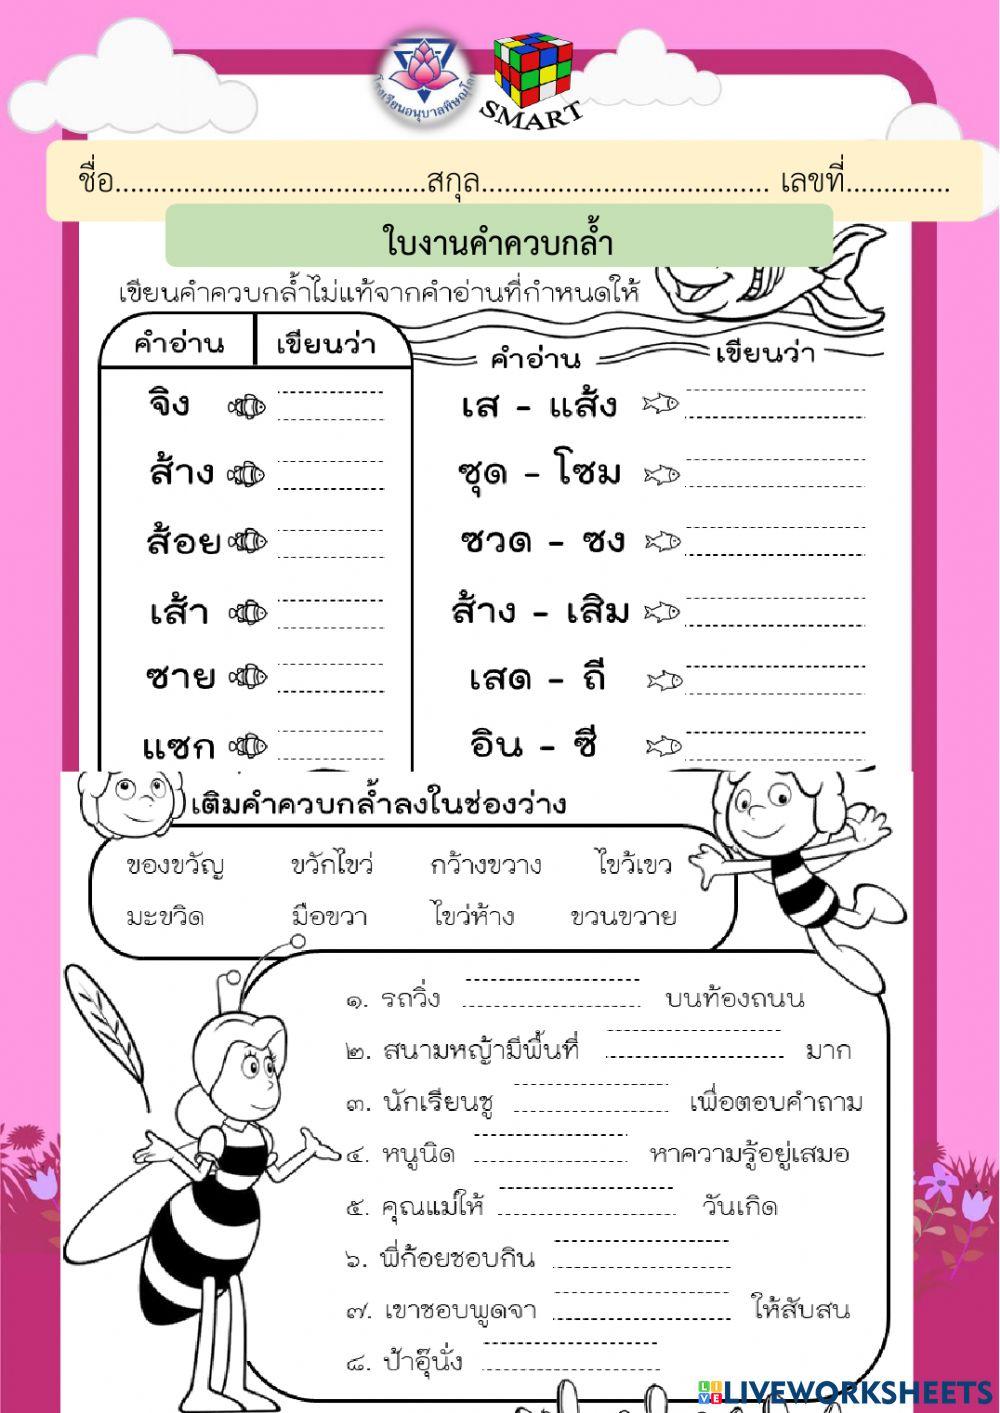 โรงเรียนอนุบาลพิษณุโลก
SMART
ชื่อ.........................................สกุล...................................... เลขที่..............
ใบงานคำควบกล้ำ
เขียนคำควบกล้ำไม่แท้จากคำอ่านที่กำหนดให้
คำอ่าน เขียนว่า คำอ่าน เขียนว่า
จิง เส - แส้ง
ส้าง ซุด - โซม
ส้อย ซวด - ซง
เส้า ส้าง - เสิม
ซาย เสด - ถี
แซก อิน - ซี
เติมคำควบกล้ำลงในช่องว่าง
ของขวัญ ขวักไขว่ กว้างขวาง ไขว้เขว
มะขวิด มือขวา ไขว่ห้าง ขวนขวาย
๑. รถวิ่ง บนท้องถนน
๒. สนามหญ้ามีพื้นที่ มาก
๓. นักเรียนชู เพื่อตอบคำถาม
๔. หนูนิด หาความรู้อยู่เสมอ
๕. คุณแม่ให้ วันเกิด
๖. พี่ก้อยชอบกิน
๗. เขาชอบพูดจา ให้สับสน
๘. ป้าอุ๊นั่ง
LIVEWORKSHEETS